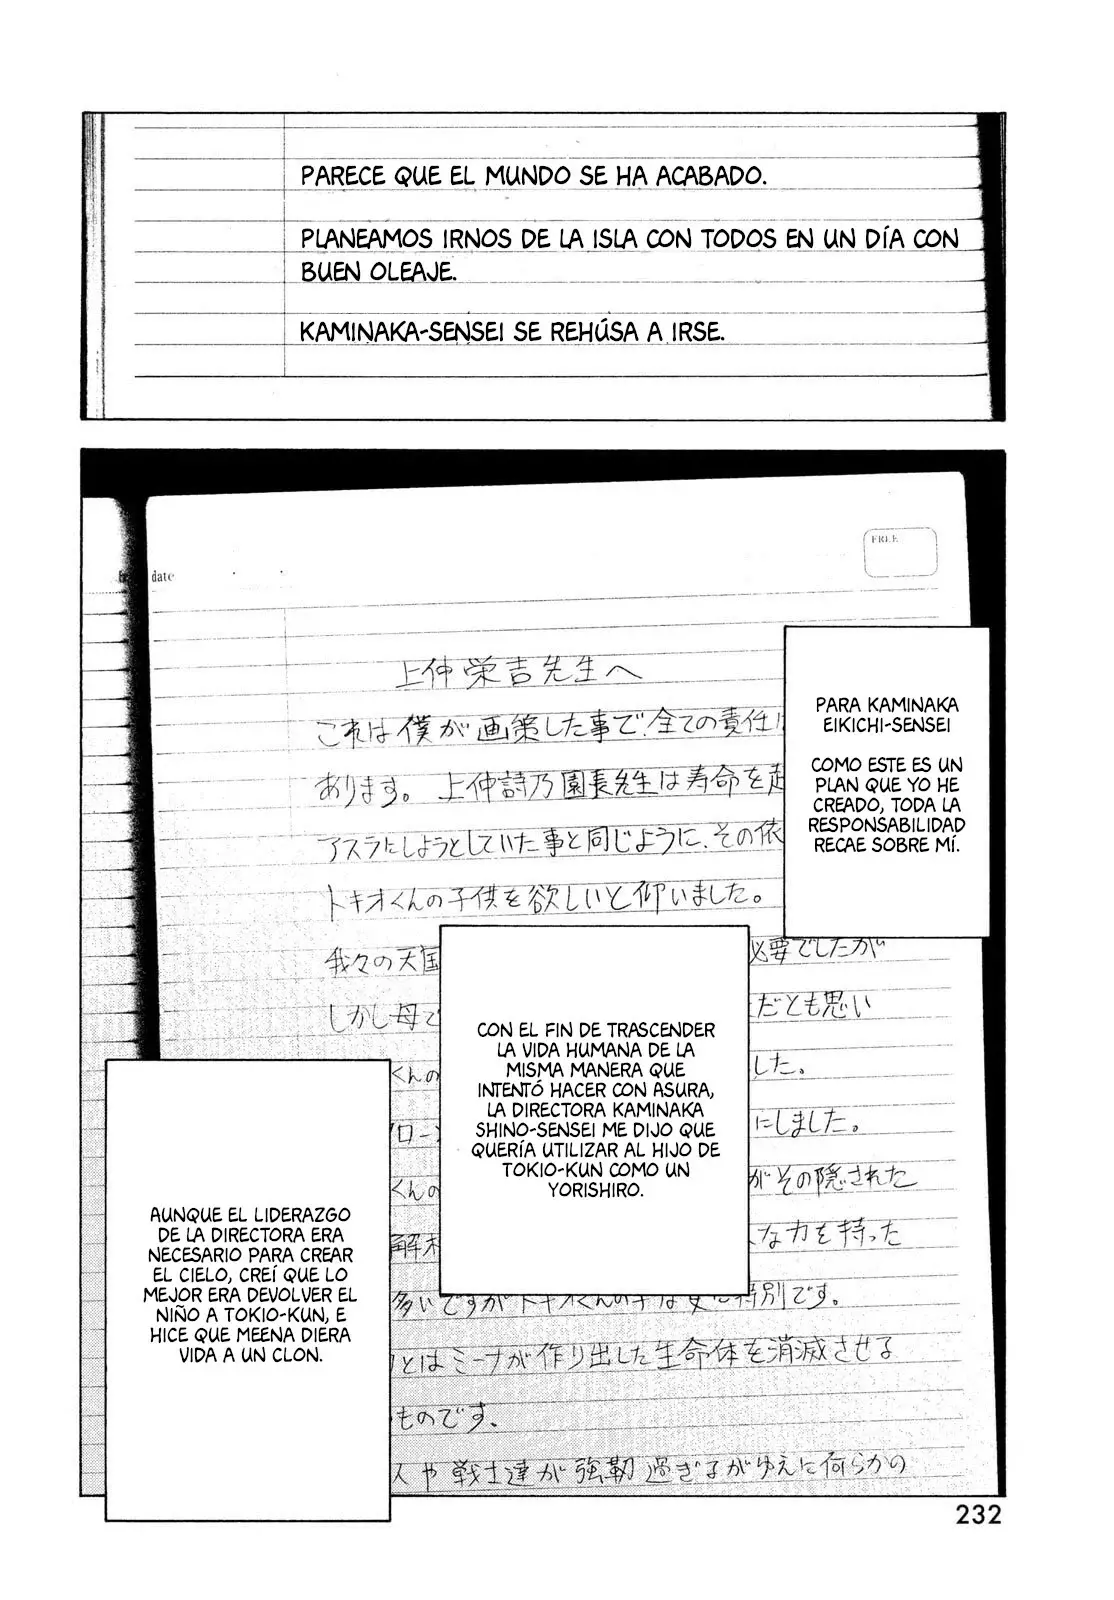 PARECE QUE EL MUNDO SE HA ACABADO.
PLANEAMOS IRNOS DE LA ISLA CON TODOS EN UN DÍA CON
BUEN OLEAJE.
KAMINAKA-SENSEI SE REHÚSA A IRSE.
date
FREE
上仲栄吉先生へ
これは僕が画策した事で全ての責任は
あります。上仲詩乃園長先生は寿命を超
アスラにしようとしていた事と同じように、その依
トキオくんの子供を欲しいと仰いました。
我々の天国
必要でしたが
しかし母で
だとも思い
くんの
した。
ローン
にしました。
くんの
がその隠された
解
な力を持った
多いですがトキオくんの子は更に特別です。
とはミーナが作り出した生命体を消滅させる
ものです、
や戦士達が強靭過ぎるがゆえに何らかの
PARA KAMINAKA
EIKICHI-SENSEI
COMO ESTE ES UN
PLAN QUE YO HE
CREADO, TODA LA
RESPONSABILIDAD
RECAE SOBRE MÍ.
CON EL FIN DE TRASCENDER
LA VIDA HUMANA DE LA
MISMA MANERA QUE
INTENTÓ HACER CON ASURA,
LA DIRECTORA KAMINAKA
SHINO-SENSEI ME DIJO QUE
QUERÍA UTILIZAR AL HIJO DE
TOKIO-KUN COMO UN
YORISHIRO.
AUNQUE EL LIDERAZGO
DE LA DIRECTORA ERA
NECESARIO PARA CREAR
EL CIELO, CREÍ QUE LO
MEJOR ERA DEVOLVER EL
NIÑO A TOKIO-KUN, E
HICE QUE MEENA DIERA
VIDA A UN CLON.
232